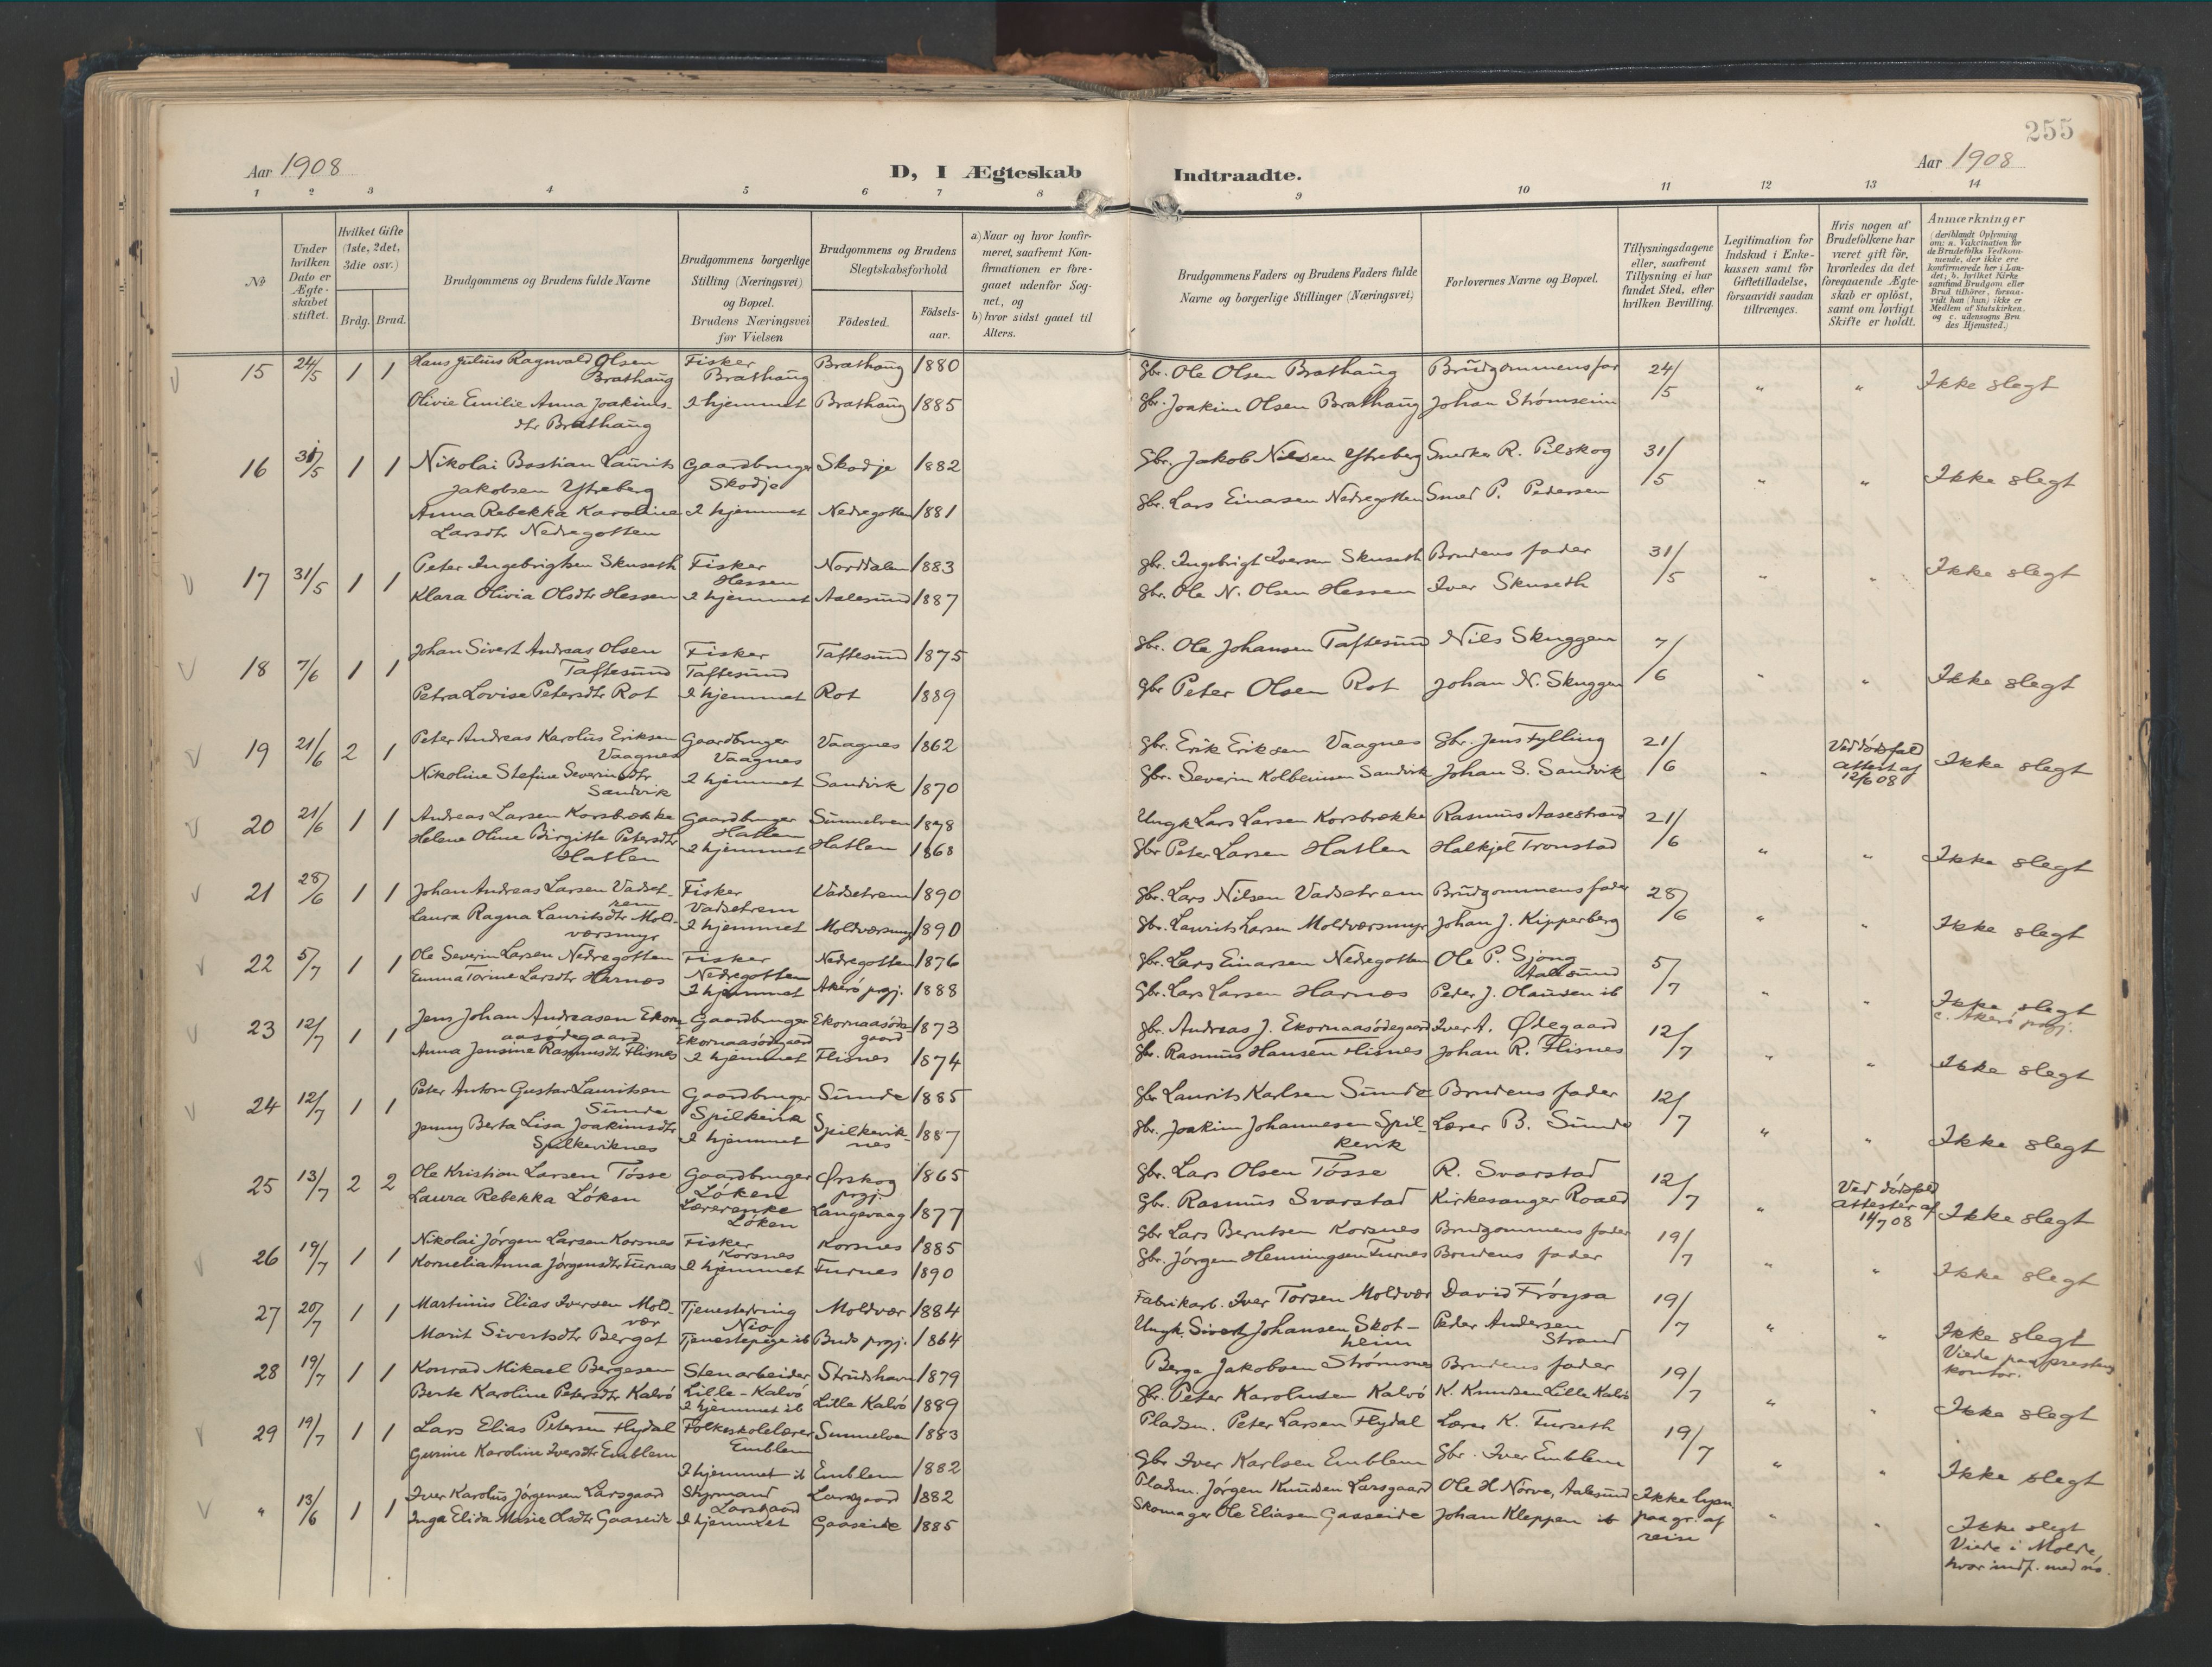 255
Aar 1908
D, I Ægteskab Indtraadte.
Aar 1908
1 2 3 4 5 6 7 8 9 10 11 12 13 14
No.
Under hvilken Dato er Ægte-skabet stiftet.
Hvilket Gifte (1ste, 2det, 3die osv.)
Brdg. Brud.
Brudgommens og Brudens fulde Navne
Brudgommens borgerlige Stilling (Næringsvei) og Bopæl. Brudens Næringsvei før Vielsen
Brudgommens og Brudens Slegtskabsforhold
Födested.
Födsels-aar.
a) Naar og hvor konfir-meret, saafremt Kon-firmationen er fore-gaaet udenfor Sog-net, og
b) hvor sidst gaaet til Alters.
Brudgommens Faders og Brudens Faders fulde Navne og borgerlige Stillinger (Næringsvei)
Forlovernes Navne og Bopæl.
Tillysningsdagene eller, saafremt Tillysning ei har fundet Sted, efter hvilken Bevilling.
Legitimation for Indskud i Enke-kassen samt for Giftetilladelse, forsaavidi saadan tiltrænges.
Hvis nogen af Brudefolkene har været gift för, hvorledes da det foregaaende Ægte-skab er oplöst, samt om lovligt Skifte er holdt.
Anmærkninger (deriblandt Oplysning om: a. Vakcination for de Brudefolks Vedkom-mende, der ikke ere konfirmerede her i Lan-det; b. hvilket Kirke-samfund Brudgom eller Brud tilhörer, forsaa-vidt han (hun) ikke er Medlem af Statskirken, og c. udensogns Bru-des Hjemsted.)
15 24/5 1 1 Hans Julius Ragnvald Olsen Fisker Brathaug 1880 Gbr. Ole Olsen Brathaug Brudgommens far 24/5 " " Ikke slegt
Brathaug Brathaug
Olivie Emilie Anna Joakims- I hjemmet Brathaug 1885 Gbr. Joakim Olsen Brathaug Johan Strømseim
dtr Brathaug
16 31/5 1 1 Nikolai Bastian Laurits Gaardbruger Skodje 1882 Gbr. Jakob Nilsen Ytreberg Snedker R. Pilskog 31/5 " " Ikke slegt
Jakobsen Ytreberg Skodje
Anna Rebekka Karoline I hjemmet Nedregotten 1881 Gbr. Lars Einarsen Nedregotten Smed P. Pedersen
Larsdtr Nedregotten
17 31/5 1 1 Peter Ingebrigtsen Skuseth Fisker Norddalen 1883 Gbr. Ingebrigt Iversen Skuseth Brudens fader 31/5 " " Ikke slegt
Hessen
Klara Olivia Olsdtr Hessen I hjemmet Aalesund 1887 Gbr. Ole N. Olsen Hessen Iver Skuseth
18 7/6 1 1 Johan Sivert Andreas Olsen Fisker Taftesund 1875 Gbr. Ole Johansen Taftesund Nils Skuggen 7/6 " " Ikke slegt
Taftesund Taftesund
Petra Lovise Petersdtr Rot I hjemmet Rot 1889 Gbr Peter Olsen Rot Johan N. Skuggen
19 21/6 2 1 Peter Andreas Karolus Eriksen Gaardbruger Vaagnes 1862 Gbr. Erik Eriksen Vaagnes Gbr. Jens Fylling 21/6 " Ved dødsfald attest af 12/6 08 Ikke slegt
Vaagnes Vaagnes
Nikoline Stefine Severinsdtr I hjemmet Sandvik 1870 Gbr. Severin Kolbeinsen Sandvik Johan S. Sandvik
Sandvik
20 21/6 1 1 Andreas Larsen Korsbrekke Gaardbruger Sunnelven 1878 Ungk Lars Larsen Korsbrekke Rasmus Aasestrand 21/6 " " Ikke slegt
Hatlen
Helene Oline Birgitte Petersdtr I hjemmet Hatlen 1868 Gbr Peter Larsen Hatlen Halkjel Tronstad
Hatlen
21 28/6 1 1 Johan Andreas Larsen Vadset- Fisker Vadsetrem 1890 Gbr. Lars Nilsen Vadsetrem Brudgommens fader 28/6 " " Ikke slegt
rem Vadsetrem
Laura Ragna Lauritsdtr Mold- I hjemmet Moldværsmyr 1890 Gbr. Laurits Larsen Moldværsmyr Johan J. Kipperberg
værsmyr
22 5/7 1 1 Ole Severin Larsen Nedregotten Fisker Nedregotten 1876 Gbr. Lars Einarsen Nedregotten Ole P. Sjong 5/7 " " Ikke slegt
Nedregotten Aalesund
Emma Torine Larsdtr Harnæs I hjemmet Akerø prgj. 1888 Gbr. Lars Larsen Harnæs Peder J. Olausen ib c. Akerø prgj.
23 12/7 1 1 Jens Johan Andreasen Ekorn- Gaardbruger Ekornaasøde- 1873 Gbr. Andreas J. Ekornaasødegaard Iver A. Ødegaard 12/7 " " Ikke slegt
aasødegaard Ekornaasødegaard gaard
Anna Jensine Rasmusdtr Flisnes I hjemmet Flisnes 1874 Gbr. Rasmus Hansen Flisnes Johan R. Flisnes
24 12/7 1 1 Peter Anton Gustav Lauritsen Gaardbruger Sunde 1885 Gbr Laurits Karlsen Sunde Brudens fader 12/7 " " Ikke slegt
Sunde Spilkevik
Jenny Berta Lisa Joakimsdtr I hjemmet Spilkevik- 1887 Gbr. Joakim Johannesen Spil- Lærer B. Sunde
Spilkeviknes nes kevik
25 13/7 2 2 Ole Kristian Larsen Tösse Gaardbruger Ørskog 1865 Gbr. Lars Olsen Tösse R. Svarstad 12/7 " Ved dødsfald attester af 14/7 08 Ikke slegt
Løken prgj.
Laura Rebekka Løken Lærerenke Langevaag 1877 Gbr. Rasmus Svarstad Kirkesanger Roald
Løken
26 19/7 1 1 Nikolai Jörgen Larsen Korsnes Fisker Korsnes 1885 Gbr Lars Berntsen Korsnes Brudgommens fader 19/7 " " Ikke slegt
Korsnes
Kornelia Anna Jörgensdtr Furnes I hjemmet Furnes 1890 Gbr. Jörgen Henningsen Furnes Brudens fader
27 20/7 1 1 Martinus Elias Iversen Mold- Tjenestedreng Moldvær 1884 Fabrikarb. Iver Torsen Moldvær David Frøysa 19/7 " " Ikke slegt
vær
Marit Sivertsdtr Berget Tjenestepige ib Buds prgj. 1864 Ungk. Sivert Johansen Skot- Peder Andersen Viede paa prestens
heim Strand kontor.
28 19/7 1 1 Konrad Mikael Bergesen Stenarbeider Strudshavn 1879 Berge Jakobsen Strömsnes Brudens fader 19/7 " " Ikke slegt
Lille-Kalvö
Berte Karoline Petersdtr Kalvö I hjemmet ib Lille Kalvö 1889 Gbr. Peter Karolusen Kalvö K. Knudsen Lille Kalvö
29 19/7 1 1 Lars Elias Petersen Flydal Folkeskolelærer Sunnelven 1883 Pladsm. Peter Larsen Flydal Lærer K. Furseth 19/7 " " Ikke slegt
Emblem
Gurine Karoline Iversdtr Emblem I hjemmet ib Emblem 1882 Gbr Iver Karlsen Emblem Gbr. Iver Emblem
" 13/6 1 1 Iver Karolus Jörgensen Larsgaard Styrmand Larsgaard 1882 Pladsm. Jörgen Knudsen Larsgaard Ole H Nørve, Aalesund Ikke lysn. " " Ikke slegt
Larsgaard paa gr. af Viede i Molde,
Inga Elida Marie Olsdtr Gaaseide I hjemmet Gaaseide 1885 Skomager Ole Eliasen Gaaseide Johan Kleppen ib reise hvor indf. med no.